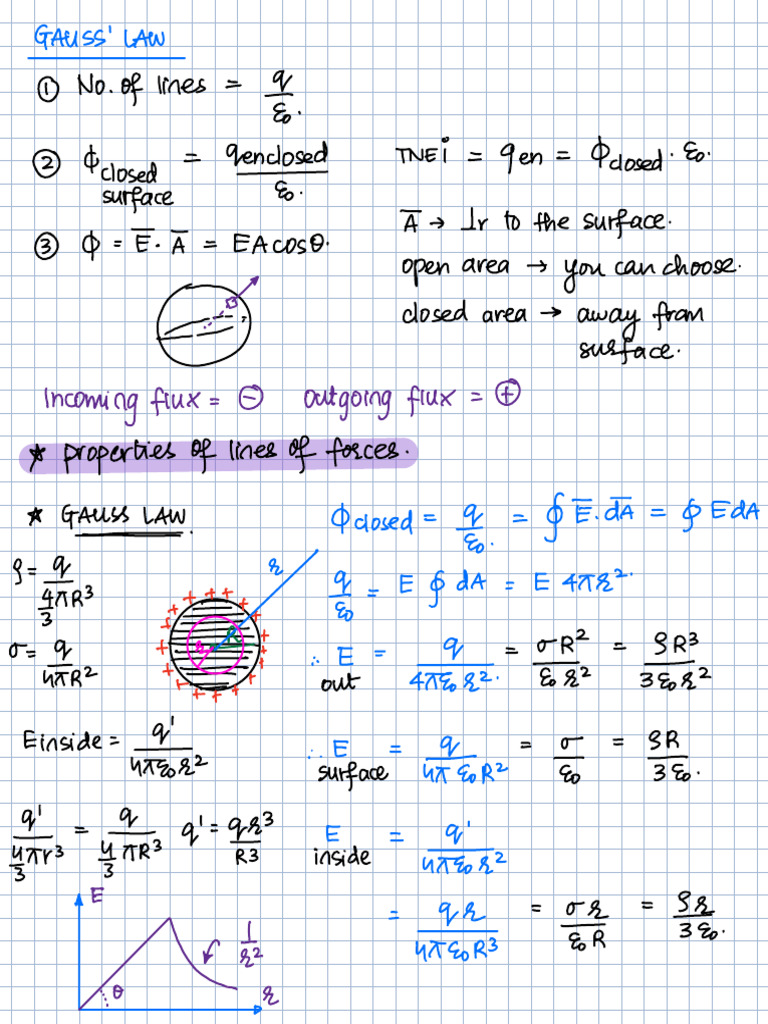 GAUSS' LAW
① No. of lines = q/ε₀.
② ϕ closed surface = qenclosed/ε₀.
TNEi = qen = ϕclosed · ε₀.
③ ϕ = E̅ · A̅ = EAcosθ.
A̅ → ⊥r to the surface.
open area → you can choose.
closed area → away from
surface.
incoming flux = ⊖ outgoing flux = ⊕
* properties of lines of forces.
* GAUSS LAW.
ϕclosed = q/ε₀. = ∮ E̅.dA̅ = ∮ EdA
ρ = q/(4/3 πR³)
q/ε₀ = E ∮ dA = E 4πr².
σ = q/4πR²
+ + + + + + + + + + + + + + + + + +
r
r R
∴ E out = q/4πε₀r². = σR²/ε₀r² = ρR³/3ε₀r²
Einside = q'/4πε₀r²
∴ E surface = q/4πε₀R² = σ/ε₀ = ρR/3ε₀.
q'/(4/3 πr³) = q/(4/3 πR³) q' = qr³/R³
E inside = q'/4πε₀r²
= qr/4πε₀R³ = σr/ε₀R = ρr/3ε₀.
E
1/r²
θ
r